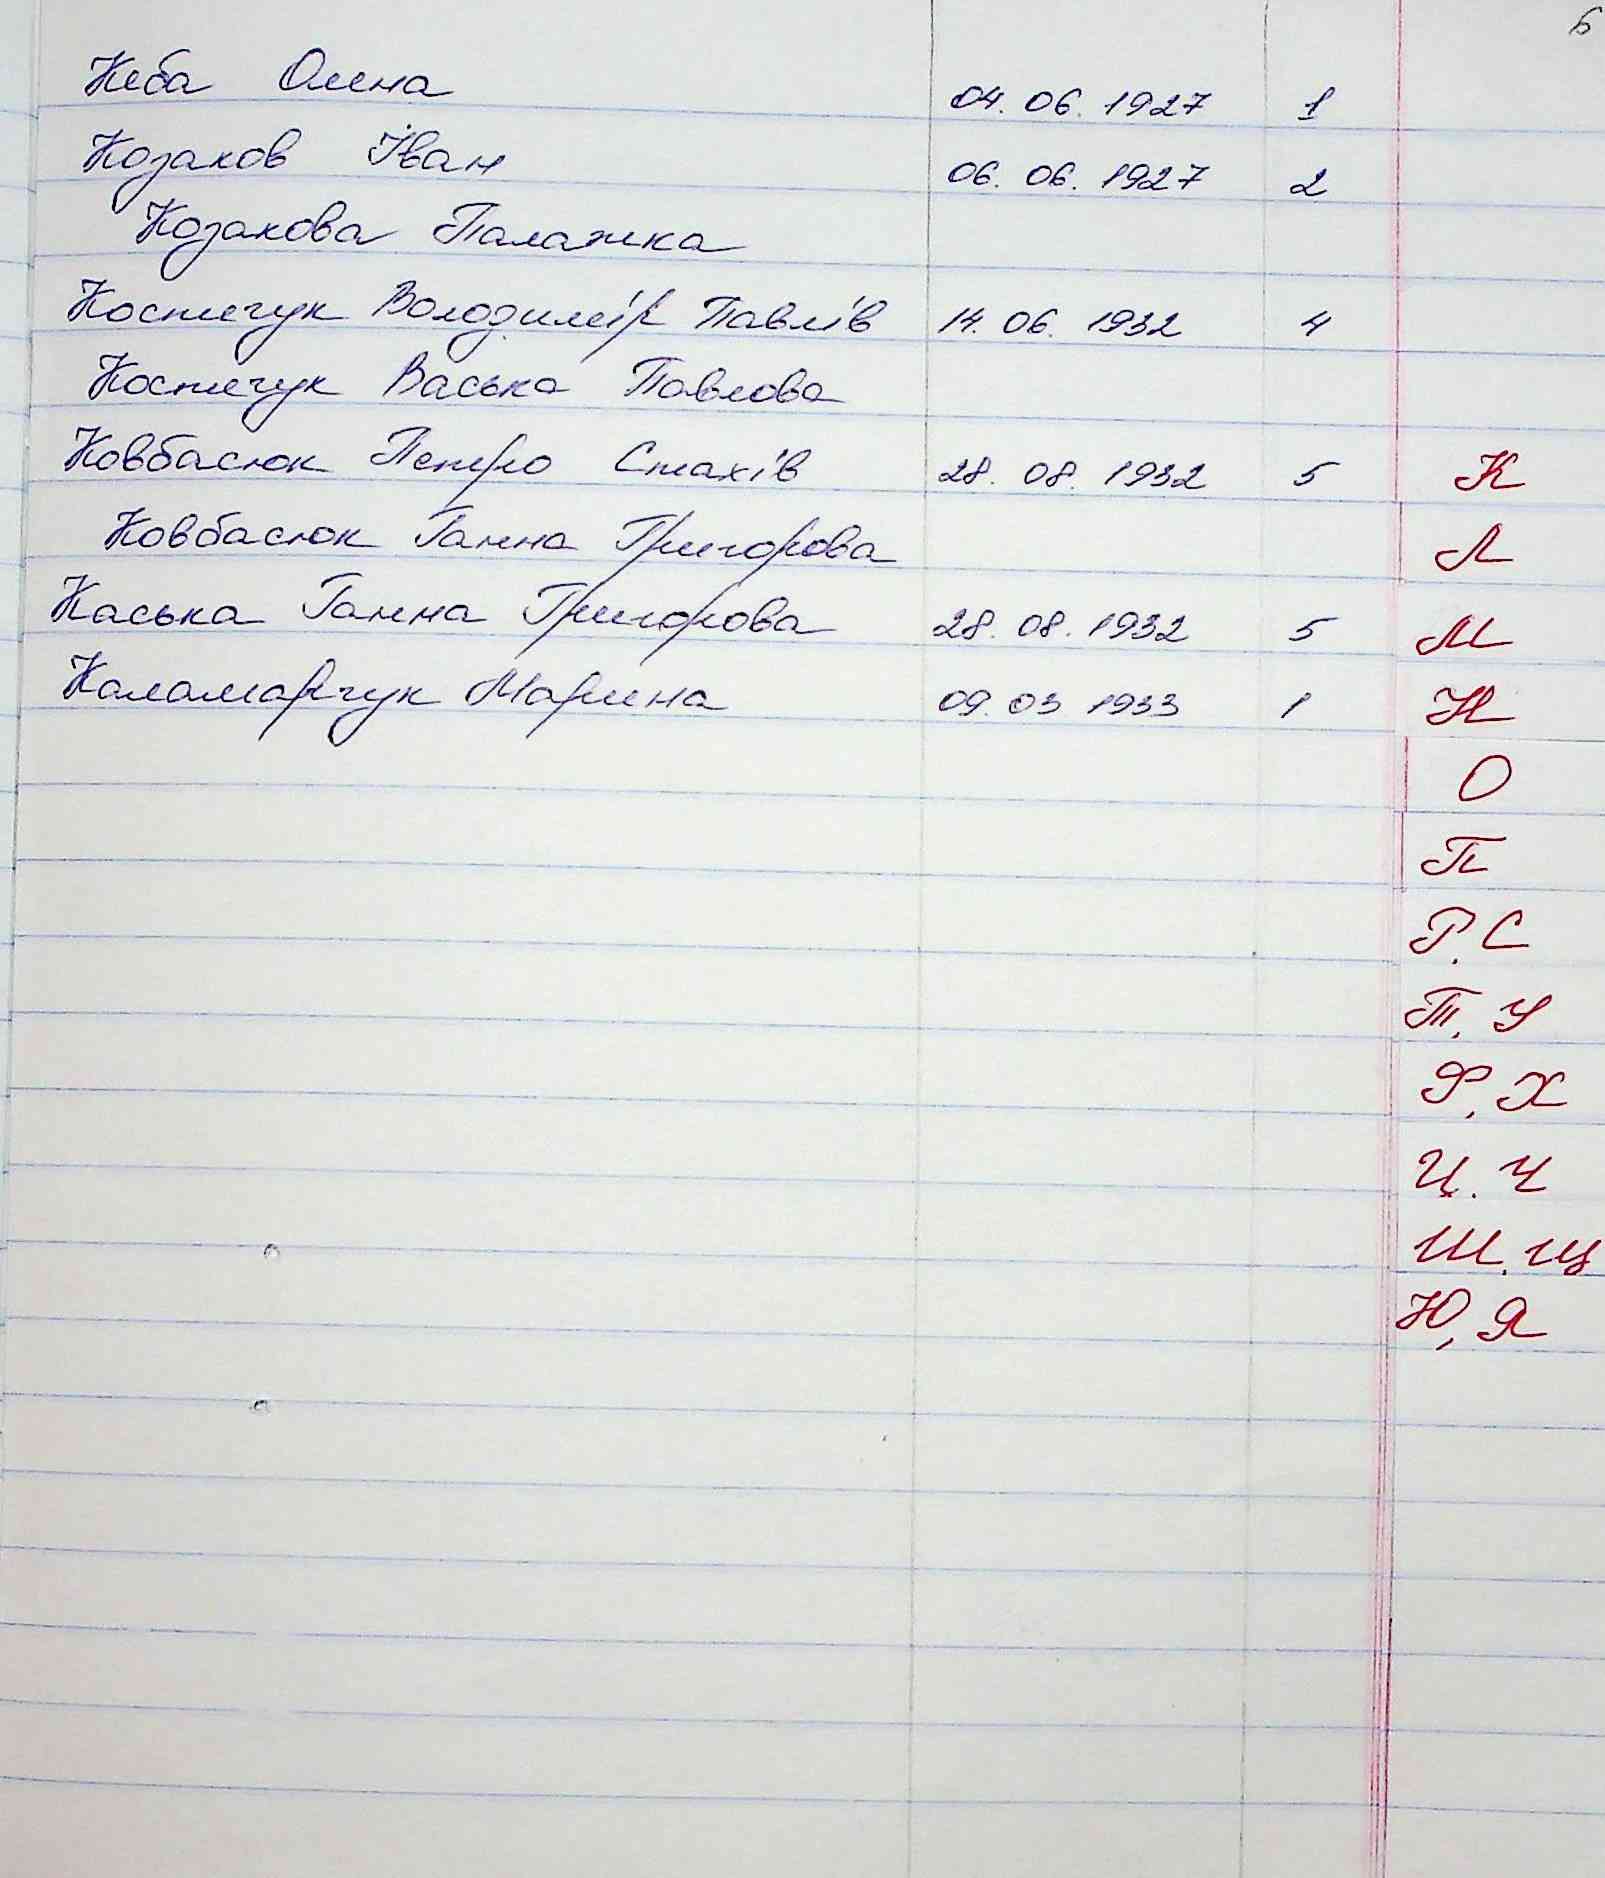 6
Кеба Олена 04. 06. 1927 1
Козаков Іван 06. 06. 1927 2
Козакова Палажка
Костечук Володимір Павлів 14. 06. 1932 4
Костечук Васька Павлова
Ковбасюк Петро Стахів 28. 08. 1932 5
Ковбасюк Ганна Григорова
Каська Ганна Григорова 28. 08. 1932 5
Каламарчук Марина 09. 03 1933 1
К
Л
М
Н
О
П
Р, С
Т, У
Ф, Х
Ц. Ч
Ш, Щ
Ю, Я